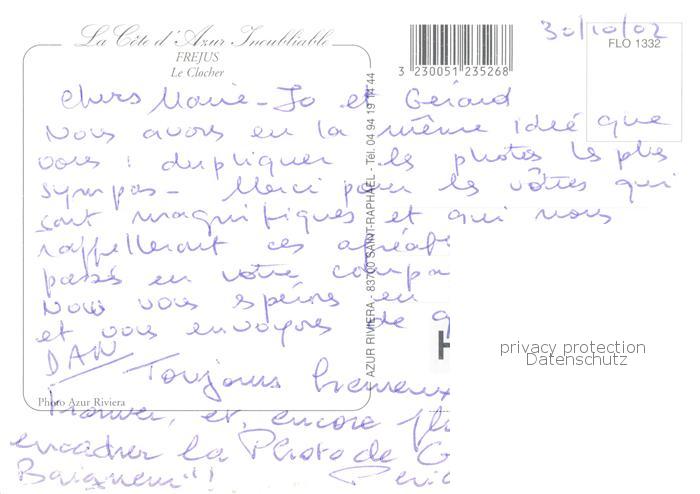 30/10/02
La Côte d'Azur Inoubliable
FREJUS
Le Clocher
3 230051 235268
FLO 1332
Chers Marie-Jo et Gérard
Nous avons eu la même idée que
vous : dupliquer les photos les plus
sympas - Merci pour les vôtres qui
sont magnifiques et qui nous
rappelleront ces agréab
passés en votre compa
Nous vous espérons en
et vous envoyons de g
DAN
Toujours heureux
trouver, et, encore plu
encadrer la Photo de G
Baigneur!!
AZUR RIVIERA - 83700 SAINT-RAPHAËL - Tél. 04 94 19 14 44
Photo Azur Riviera
H
privacy protection
Datenschutz